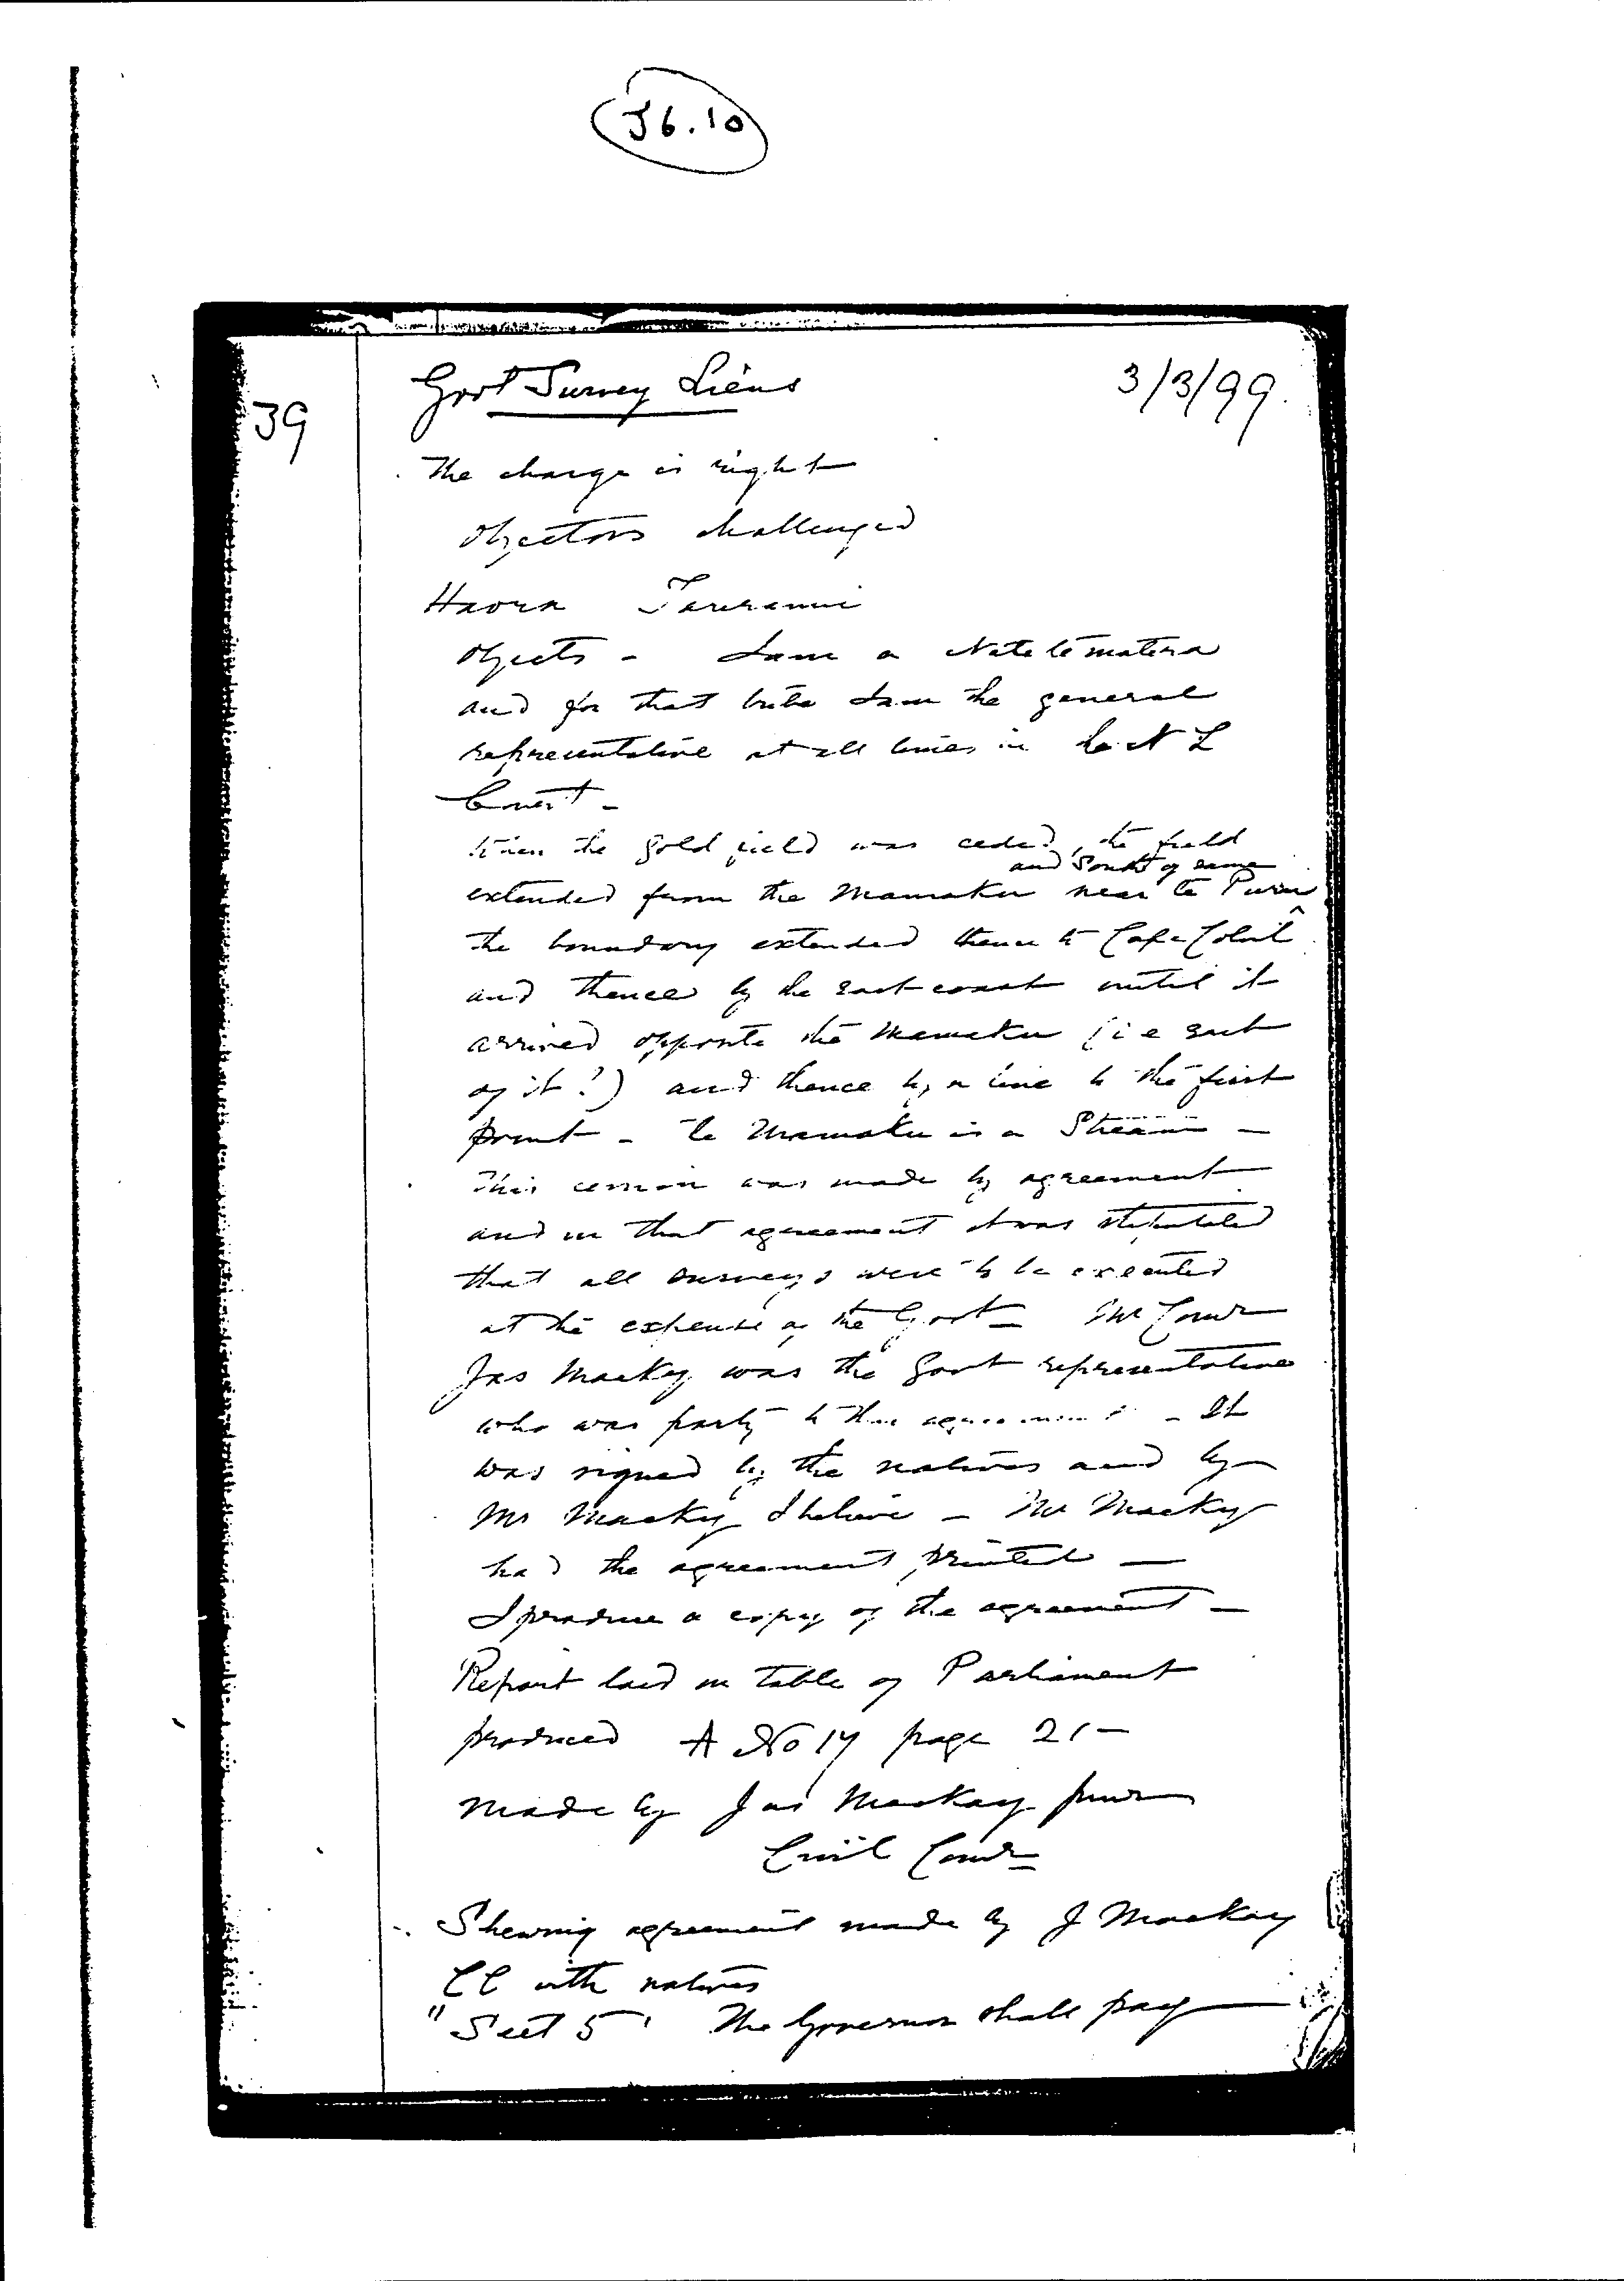 J6.10
39
Govt Survey Liens 3/3/99.
The charge is right
Objectors challenged
Haora Tareranui
Objects - I am a Ngatetematera
and for that tribe I am the general
representative at all times in the N L
Court -
When the gold field was ceded, the field
and South of same
extended from the Mamaku near te Puru
the boundary extended thence to Cape Colvil
and thence by the East coast until it
arrived opposite the Mamaku (i e East
of it?) and thence by a line to the first
point - Te Mamaku is a Stream -
This cession was made by agreement
and in that agreement it was stipulated
that all surveys were to be executed
at the expense of the Govt - Mr Comr
Jas Macky was the Govt representative
who was party to the agreement - It
was signed by the natives and by
Mr Macky I believe - Mr Macky
had the agreement printed -
I produce a copy of the agreement -
Report laid on table of Parliament
produced A No 17 page 21 -
made by Jas Mackay junr
Civil Comr
Shewing agreement made by J Mackay
CC with natives
"Sect 5' The Governor shall pay